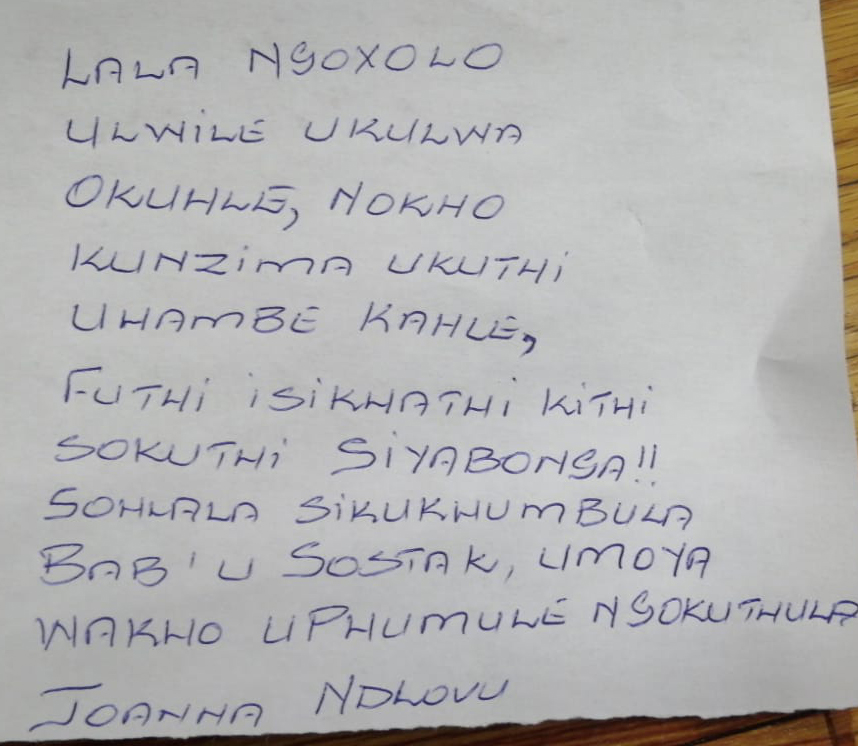 LALA NGOXOLO
ULWILE UKULWA
OKUHLE, NOKHO
KUNZIMA UKUTHI
UHAMBE KAHLE,
FUTHI ISIKHATHI KITHI
SOKUTHI SIYABONGA!!
SOHLALA SIKUKHUMBULA
BAB'U SOSTAK, UMOYA
WAKHO UPHUMULE NGOKUTHULA
JOANNA NDLOVU